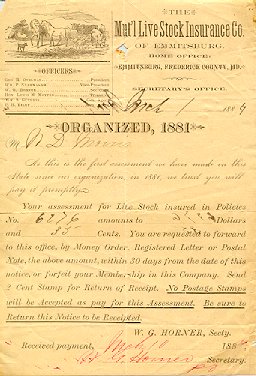 THE
Mut'l Live Stock Insurance Co.
OF EMMITSBURG.
HOME OFFICE:
EMMITSBURG, FREDERICK COUNTY, MD.
OFFICERS
SECRETARY'S OFFICE.
188
ORGANIZED, 1881
M
As this is the first assessment we have made in this
State since our organization in 1881, we trust you will
pay it promptly.
Your assessment for Live Stock insured in Policies
No. 6276 amounts to Dollars
and Cents. You are requested to forward
to this office, by Money Order, Registered Letter or Postal
Note, the above amount, within 30 days from the date of this
notice, or forfeit your Membership in this Company. Send
2 Cent Stamp for Return of Receipt. No Postage Stamps
will be Accepted as pay for this Assessment. Be sure to
Return this Notice to be Receipted.
W. G. HORNER, Secty.
Received payment, 188
Secretary.